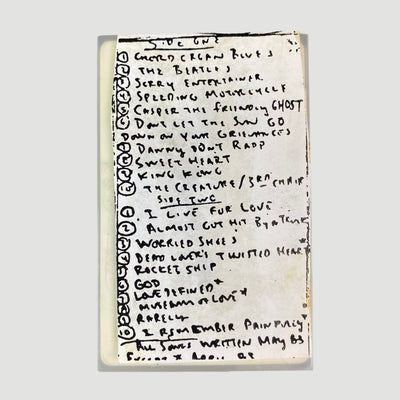 SIDE ONE
CHORD ORGAN BLUES
THE BEATLES
SORRY ENTERTAINER
SPEEDING MOTORCYCLE
CASPER THE FRIENDLY GHOST
DON'T LET THE SUN GO
DOWN ON YOUR GRIEVANCES
DANNY DON'T RAPP
SWEET HEART
KING KONG
THE CREATURE/3RD CHAIR
SIDE TWO
I LIVE FOR LOVE
ALMOST GOT HIT BY A TRUCK
WORRIED SHOES
DEAD LOVER'S TWISTED HEART
ROCKET SHIP
GOD
LOVE DEFINED*
MUSEUM OF LOVE*
RARELY
I REMEMBER PAINFULLY
ALL SONGS WRITTEN MAY 83
EXCEPT * APRIL 83